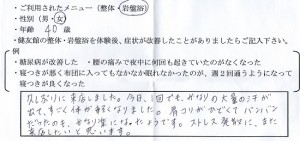 ・ご利用されたメニュー(整体・岩盤浴)
・性別(男・女)
・年齢 40 歳
・健友館の整体・岩盤浴を体験後、症状が改善したことがありましたらご記入下さい。
例
・糖尿病が改善した ・腰の痛みで夜中に何回も起きていたのがなくなった
・寝つきが悪く布団に入ってもなかなか眠れなかったのが、週2回通うようになって
寝つきが良くなった
久しぶりに来店しました。今日、1回でも、かなりの大量の汗が
出て、すごく体が軽くなりました。肩コリがひどくてバンバン
だったのも、かなり楽になったようです。ストレス発散に、また
来店したいと思います。